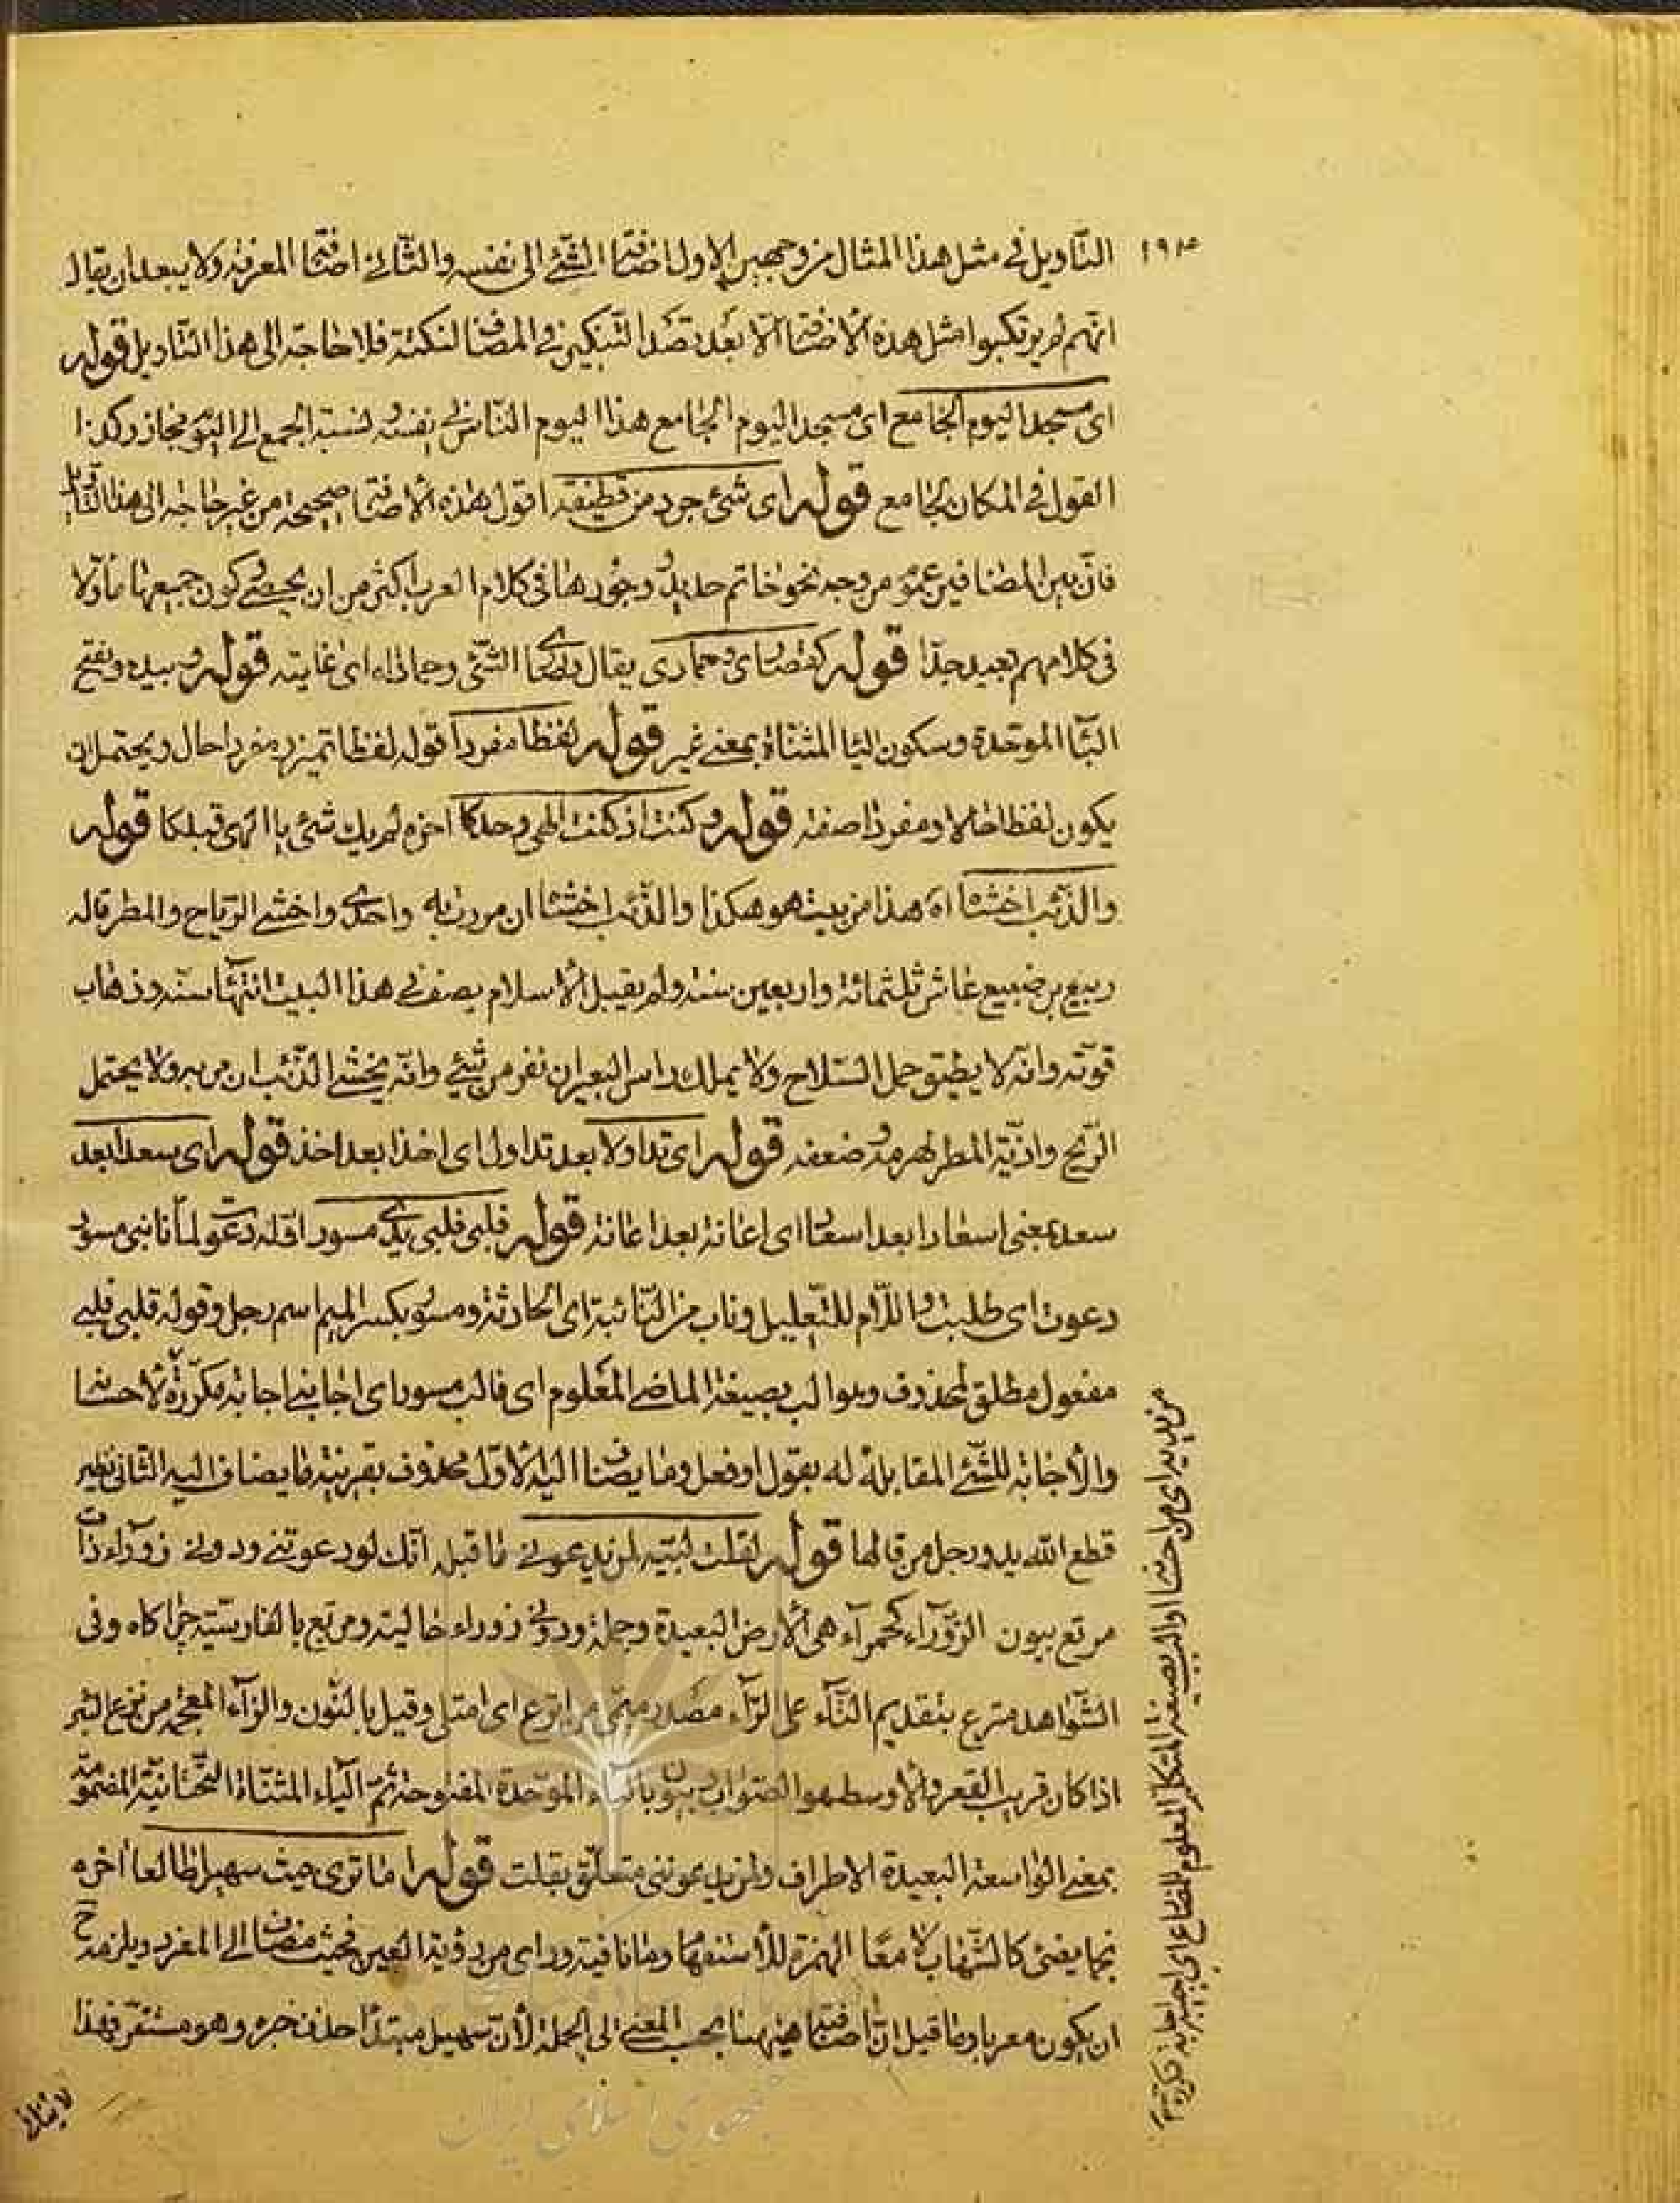 ١٩٣
التّأويل في مثل هذا المثال من وجهين الاول اضافة الشّئ الى نفسه والثّاني اضافة المعرفة ولا يبعد ان يقال
انّهم لم يرتكبوا مثل هذه الاضافة الّا بعد قصد التّنكير في المضاف لنكتة فلا حاجة الى هذا التّأويل قوله
اى مسجد اليوم الجامع اى مسجد اليوم الجامع هذا اليوم النّاس في نفسه لنسبة الجمع الى اليوم مجاز وكذا
القول في المكان الجامع قوله اى شئ جرد من قطيفة اقول هذه الاضافة صحيحة من غير حاجة الى هذا التّأويل
فانّ بين المضافين عموم من وجه نحو خاتم حديد ووجودها في كلام العرب اكثر من ان يحصى وكون جميعها مأوّلا
في كلامهم بعيد جدّا قوله كقصارى وحمادى يقال قصارى الشّئ وحماداه اى غايته قوله وبيد بفتح
البآء الموحّدة وسكون اليآء المثنّاة بمعنى غير قوله لفظا مفردا قوله لفظا تميز مفردا حال ويحتمل ان
يكون لفظا حالا ومفردا صفته قوله وكنت اذ كنت الهى وحدكا اخره لم يك شئ يا الهى قبلكا قوله
والذّئب اخشاه اه هذا من بيت هو هكذا والذّئب اخشاه ان مررت به وحدى واخشى الرّياح والمطر قاله
ربيع بن ضبيع عاش ثلثمائة واربعين سنة ولم يقبل الاسلام يصف في هذا البيت انتهآء سنه وذهاب
قوّته وانّه لا يطيق حمل السّلاح ولا يملك راس البعير ان نفر من شئ وانّه يخشى الذّئب ان مر به ولا يحتمل
الرّيح واذيّة المطر لهرمه وضعفه قوله اى تداولا بعد تداول اى اخذا بعد اخذ قوله اى سعدا بعد
سعد بمعنى اسعادا بعد اسعاد اى اعانة بعد اعانة قوله فلبى فلبى يدى مسور اوّله دعوت لما نابنى مسورا
دعوت اى طلبت واللّام للتّعليل وناب من النّائبة اى الحادثة ومسور بكسر الميم اسم رجل وقوله فلبى فلبى
مفعول مطلق لمحذوف وهو الب بصيغة الماضى المعلوم اى فالب مسور اى اجابنى اجابة مكرّرة لاحسانه
والاجابة للشّئ المقابلة له بقول او فعل وما يضاف اليه الاوّل محذوف بقرينة ما يضاف اليه الثّانى نظير
قطع الله يد ورجل من قالها قوله لقلت لبّيه لمن يدعونى ما قبله انّك لو دعوتنى ودونى زورآء ذات
مرتع بيون الزّورآء كحمرآء هى الارض البعيدة وجملة ودونى زوراء حالية ومرتع بالفارسيّة چراكاه وفى
الشّواهد مترع بتقديم التّآء على الرّآء مصدر ميمى من اترع اى امتلى وقيل بالنّون والزّآء المعجمة من نزع البئر
اذا كان قريب القعر والاوسط هو الصّواب بيون بالبآء الموحّدة المفتوحة ثمّ اليآء المثنّاة التّحتانيّة المضمومة
بمعنى الواسعة البعيدة الاطراف ولمن يدعونى متعلّق بقلت قوله اما ترى حيث سهيل طالعا اخره
نجما يضئ كالشّهاب لامعا الهمزة للاستفهام وما نافية وراى من رؤية العين فحيث مضاف الى المفرد ويلزمه ح
ان يكون معربا وما قيل انّ اضافتها هيهنا بحسب المعنى الى الجملة لأنّ سهيل مبتدأ حذف خبره وهو مستقر فهذا
لا ينافى